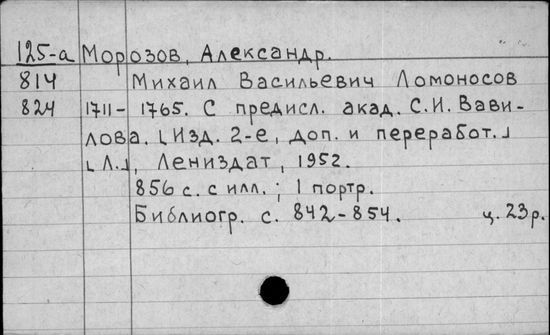 125-а Морозов, Александр.
814 Михаил Васильевич Ломоносов
824 1711- 1765. С предисл. акад. С.И. Вави-
лова. [Изд. 2-е, доп. и переработ.]
[Л.], Лениздат, 1952.
856 с. с илл. ; 1 портр.
Библиогр. с. 842-854. ц. 23 р.